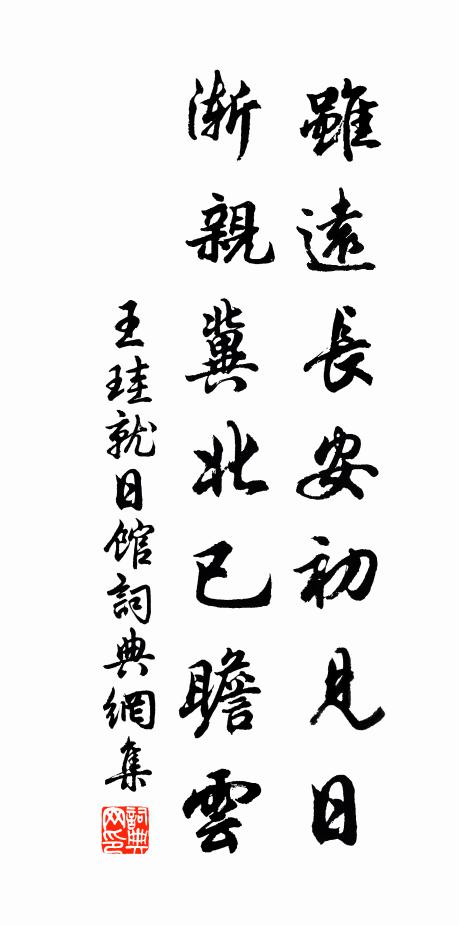 雖遠長安初見日
漸親冀北已瞻雲
王珪就日館詞典網集
詞典网印